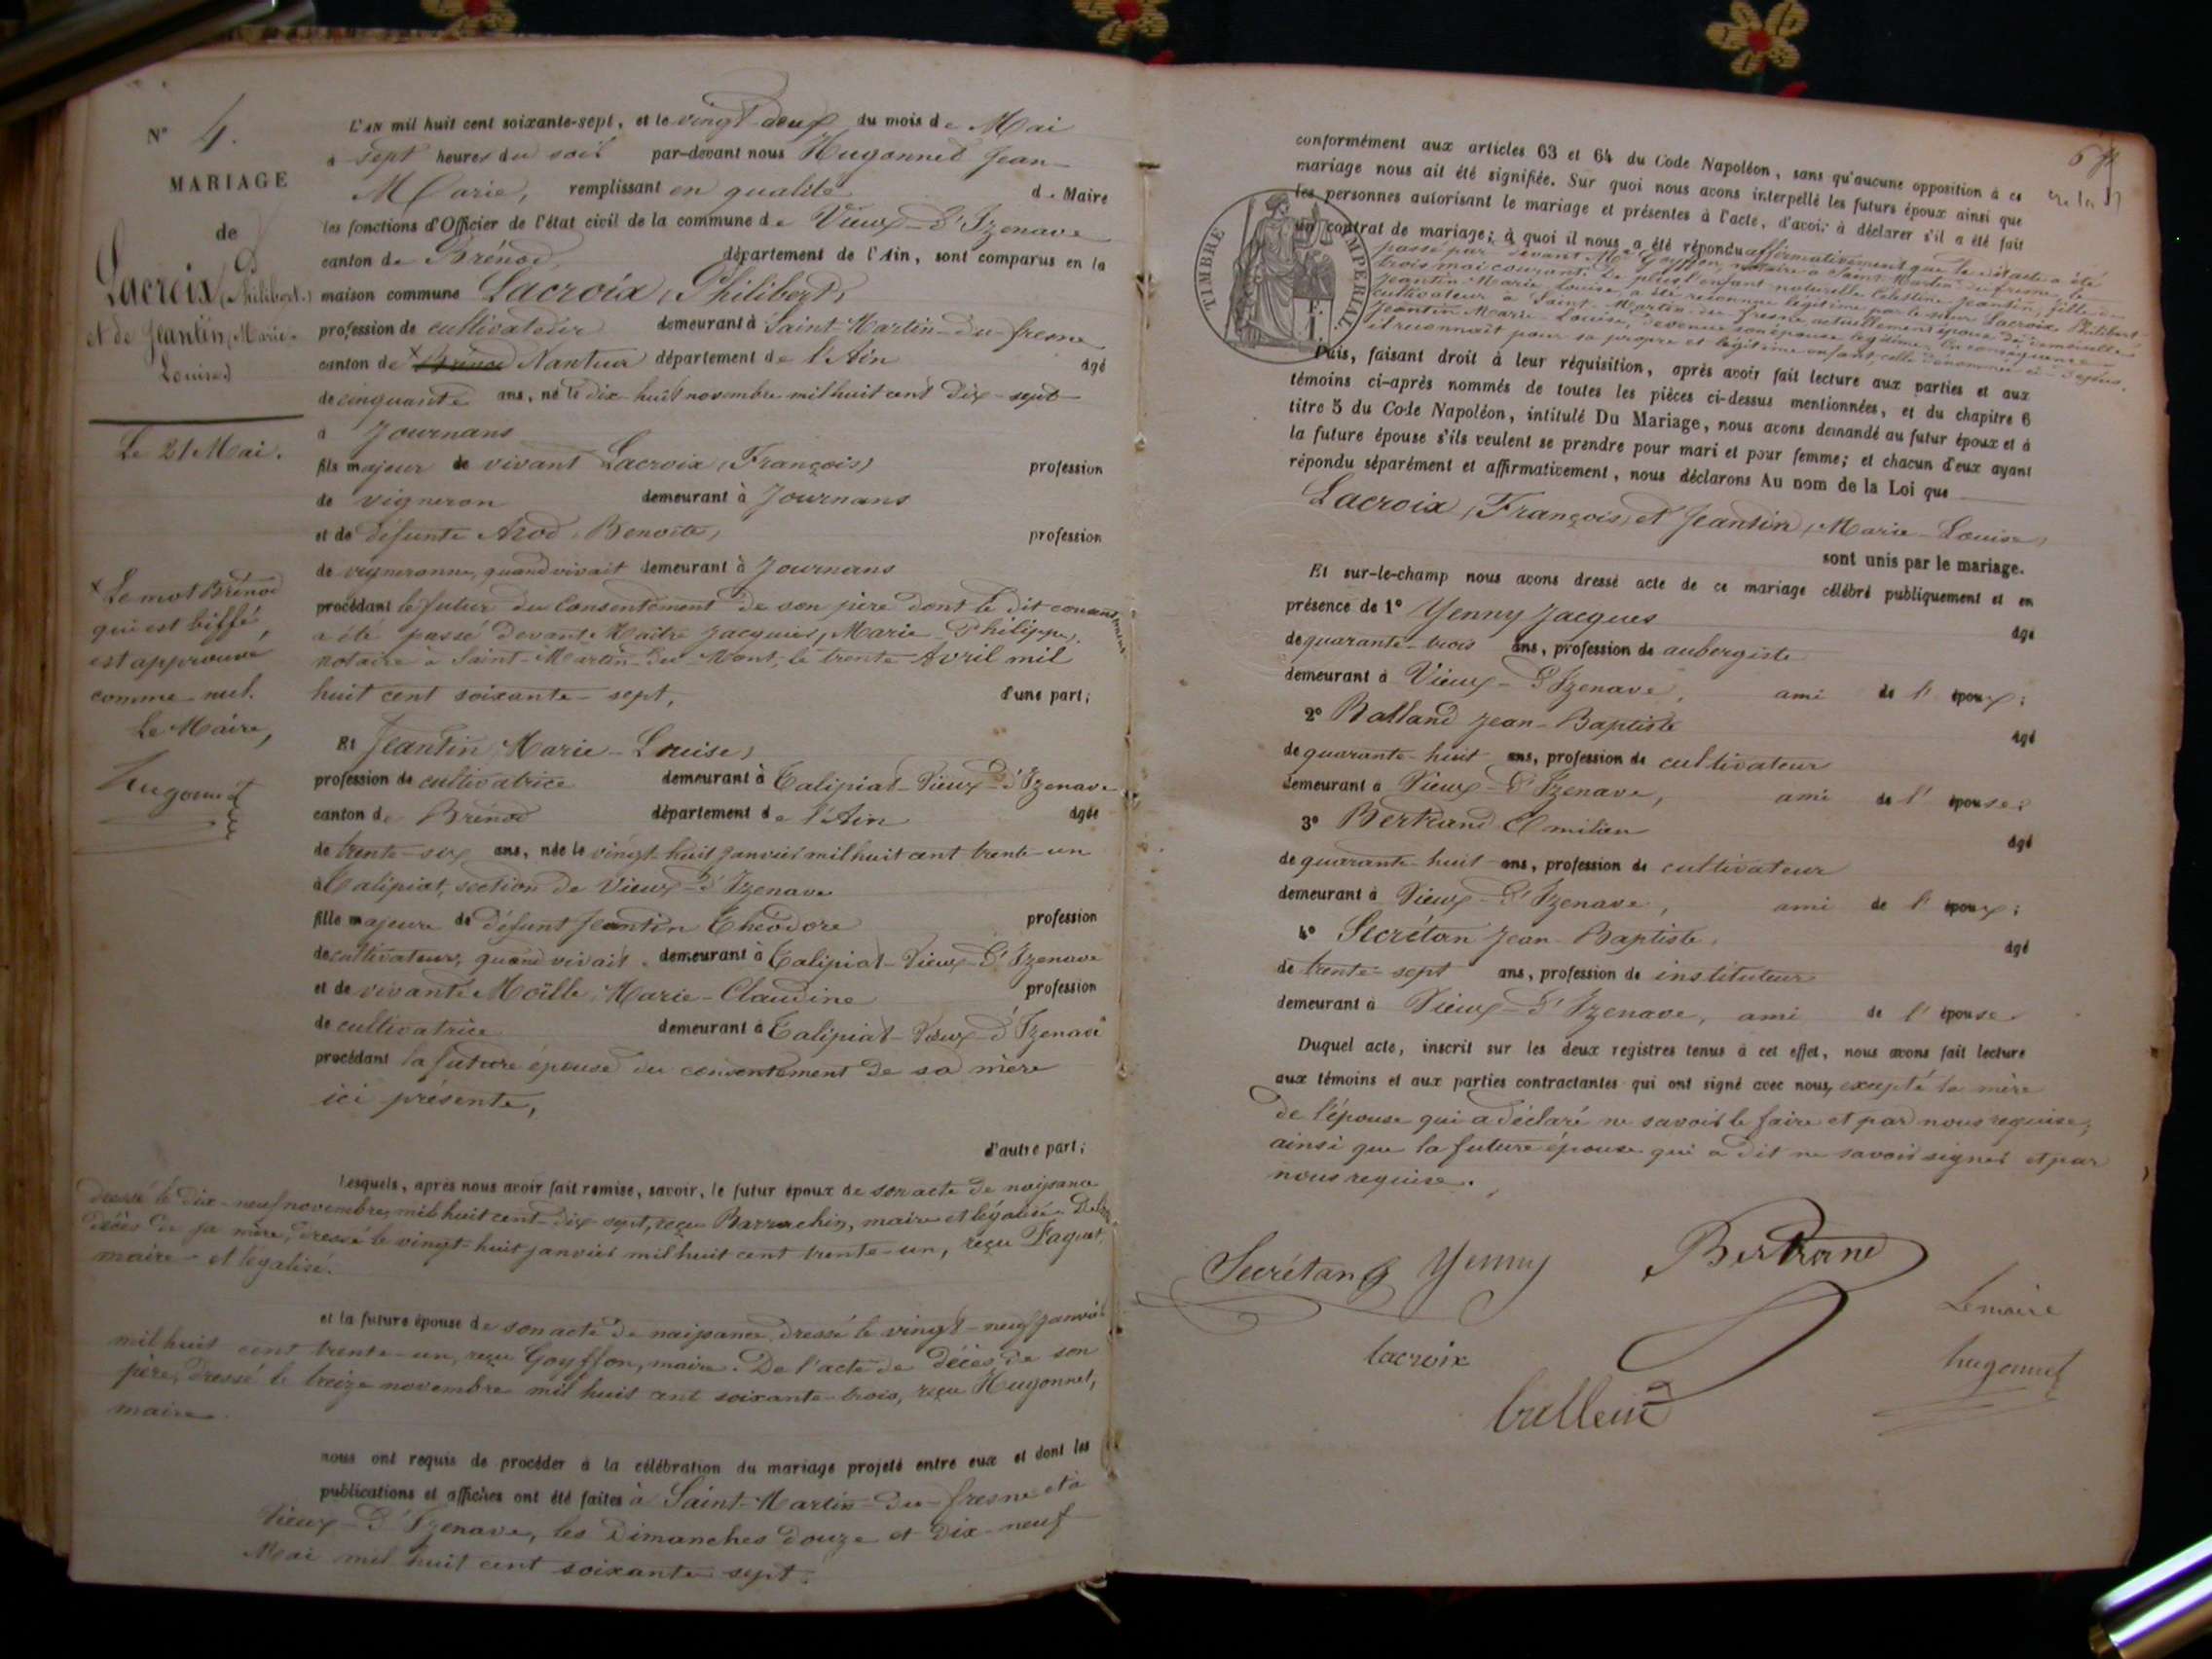 N° 4.
MARIAGE
de
Lacroix (Philibert)
et de Jeantin (Marie-
Louise)
Le 21 Mai.
x Le mot Brénod
qui est biffé,
est approuvé
comme nul.
Le Maire,
Hugonnet
L'AN mil huit cent soixante-sept, et le vingt-deux du mois de Mai
à sept heures du soir par-devant nous Hugonnet Jean-
Marie, remplissant en qualité de Maire
les fonctions d'Officier de l'état civil de la commune de Vieux-d'Izenave
canton de Brénod, département de l'Ain, sont comparus en la
maison commune Lacroix (Philibert)
profession de cultivateur demeurant à Saint-Martin-du-fresne
canton de x Brénod Nantua département de l'Ain âgé
de cinquante ans, né le dix-huit novembre mil huit cent dix-sept
à Journans
fils majeur de vivant Lacroix (François) profession
de vigneron demeurant à Journans
et de défunte Arod (Benoite) profession
de vigneronne, quand vivait demeurant à Journans
procédant le futur du consentement de son père dont le dit consentement
a été passé devant Maître Jacquier (Marie-Philippe),
notaire à Saint-Martin-du-Mont, le trente Avril mil
huit cent soixante-sept, d'une part;
Et Jeantin (Marie-Louise)
profession de cultivatrice demeurant à Talipiat-Vieux-d'Izenave
canton de Brénod département de l'Ain âgée
de trente-six ans, née le vingt-huit janvier mil huit cent trente-un
à Talipiat, section de Vieux-d'Izenave
fille majeure de défunt Jeantin Théodore profession
de cultivateur, quand vivait demeurant à Talipiat-Vieux-d'Izenave
et de vivante Moëlle Marie-Claudine profession
de cultivatrice demeurant à Talipiat-Vieux-d'Izenave
procédant la future épouse du consentement de sa mère
ici présente,
d'autre part;
Lesquels, après nous avoir fait remise, savoir, le futur époux de son acte de naissance
dressé le dix-neuf novembre mil huit cent dix-sept, reçu Barrachin, maire et légalisé. De l'acte
décès de sa mère, dressé le vingt-huit janvier mil huit cent trente-un, reçu Paquet,
maire et légalisé.
et la future épouse de son acte de naissance, dressé le vingt-neuf janvier
mil huit cent trente-un, reçu Goyffon, maire. De l'acte de décès de son
père, dressé le treize novembre mil huit cent soixante-trois, reçu Hugonnet,
maire.
nous ont requis de procéder à la célébration du mariage projeté entre eux et dont les
publications et affiches ont été faites à Saint-Martin-du-fresne et à
Vieux-d'Izenave, les Dimanches douze et dix-neuf
Mai mil huit cent soixante-sept.
conformément aux articles 63 et 64 du Code Napoléon, sans qu'aucune opposition à ce
mariage nous ait été signifiée. Sur quoi nous avons interpellé les futurs époux ainsi que
les personnes autorisant le mariage et présentes à l'acte, d'avoir à déclarer s'il a été fait
un contrat de mariage; à quoi il nous a été répondu affirmativement que le dit acte a été
passé par devant Me Goyffon, notaire à Saint-Martin-du-fresne, le
trois mai courant. De plus l'enfant naturelle Célestine Jeantin, fille de
Jeantin Marie-Louise, a été reconnue légitime par le sieur Lacroix Philibert
cultivateur à Saint-Martin-du-fresne actuellement époux de demoiselle
Jeantin Marie-Louise, devenue son épouse légitime. En conséquence
il reconnaît pour sa propre et légitime enfant, celle dénommée ci-dessus.
TIMBRE IMPERIAL
Puis, faisant droit à leur réquisition, après avoir fait lecture aux parties et aux
témoins ci-après nommés de toutes les pièces ci-dessus mentionnées, et du chapitre 6
titre 5 du Code Napoléon, intitulé Du Mariage, nous avons demandé au futur époux et à
la future épouse s'ils veulent se prendre pour mari et pour femme; et chacun d'eux ayant
répondu séparément et affirmativement, nous déclarons Au nom de la Loi que
Lacroix (François) et Jeantin (Marie-Louise)
sont unis par le mariage.
Et sur-le-champ nous avons dressé acte de ce mariage célébré publiquement et en
présence de 1° Yenny Jacques âgé
de quarante-trois ans, profession de aubergiste
demeurant à Vieux-d'Izenave, ami de l'époux;
2° Balland Jean-Baptiste âgé
de quarante-huit ans, profession de cultivateur
demeurant à Vieux-d'Izenave, ami de l'épouse;
3° Bertrand Emilien âgé
de quarante-huit ans, profession de cultivateur
demeurant à Vieux-d'Izenave, ami de l'époux;
4° Secrétan Jean-Baptiste, âgé
de trente-sept ans, profession de instituteur
demeurant à Vieux-d'Izenave, ami de l'épouse.
Duquel acte, inscrit sur les deux registres tenus à cet effet, nous avons fait lecture
aux témoins et aux parties contractantes qui ont signé avec nous, excepté la mère
de l'épouse qui a déclaré ne savoir le faire et par nous requise,
ainsi que la future épouse qui a dit ne savoir signer et par
nous requise.
Secrétan Yenny Bertrand
Lemaire
lacroix hugonnet
balland